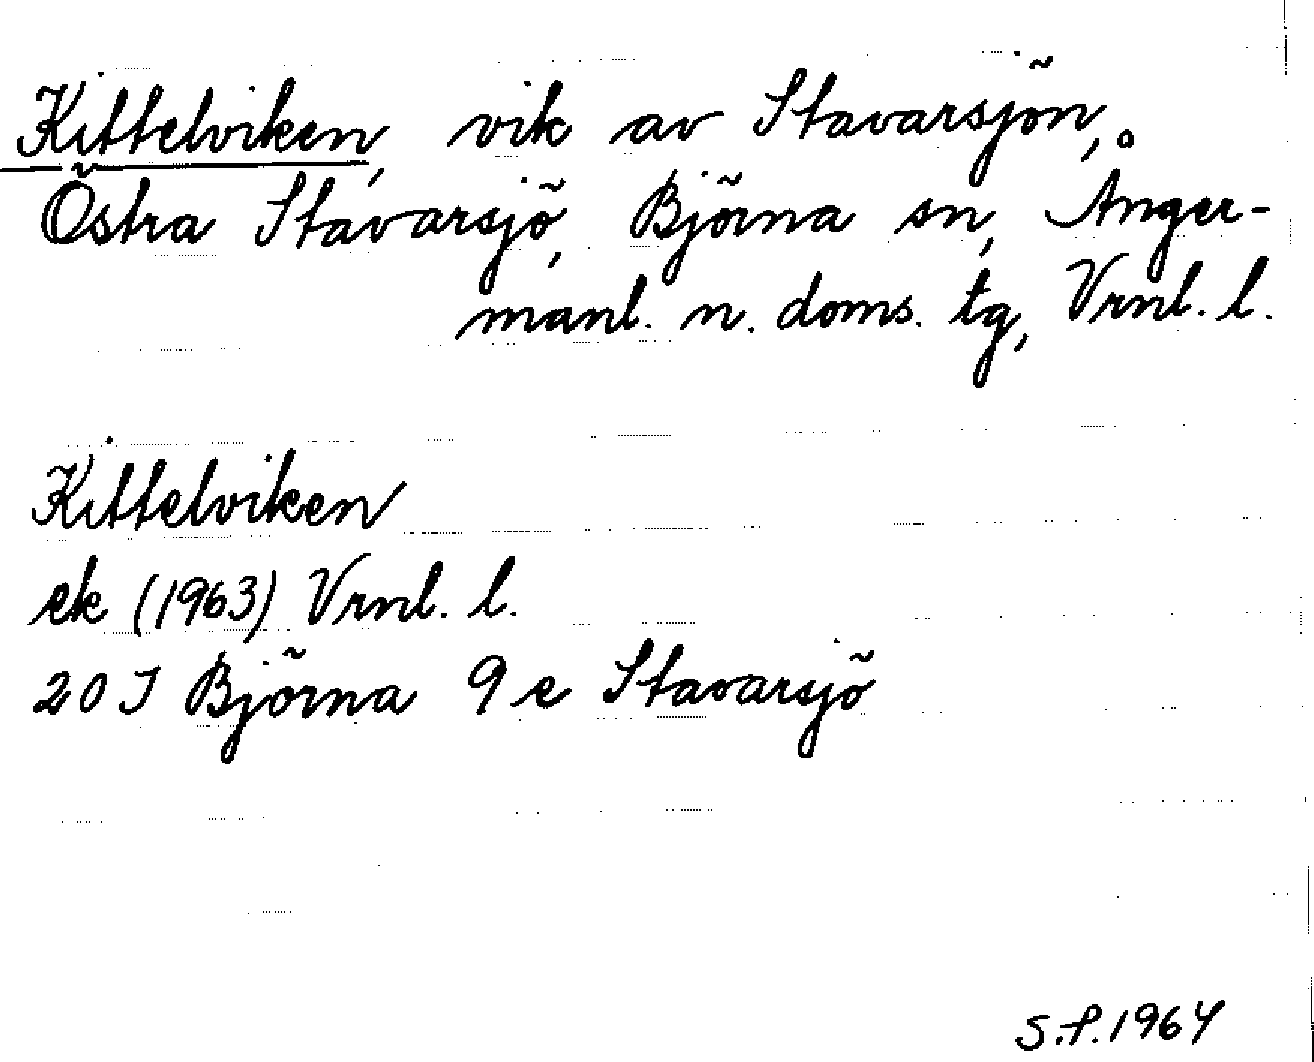 Kittelviken, vik av Stavarsjön,
Östra Stavarsjö, Björna sn, Ånger-
manl. n. doms. tg, Vrnl. l.
Kittelviken
ek (1963) Vrnl. l.
20 I Björna 9 e Stavarsjö
S.P. 1964